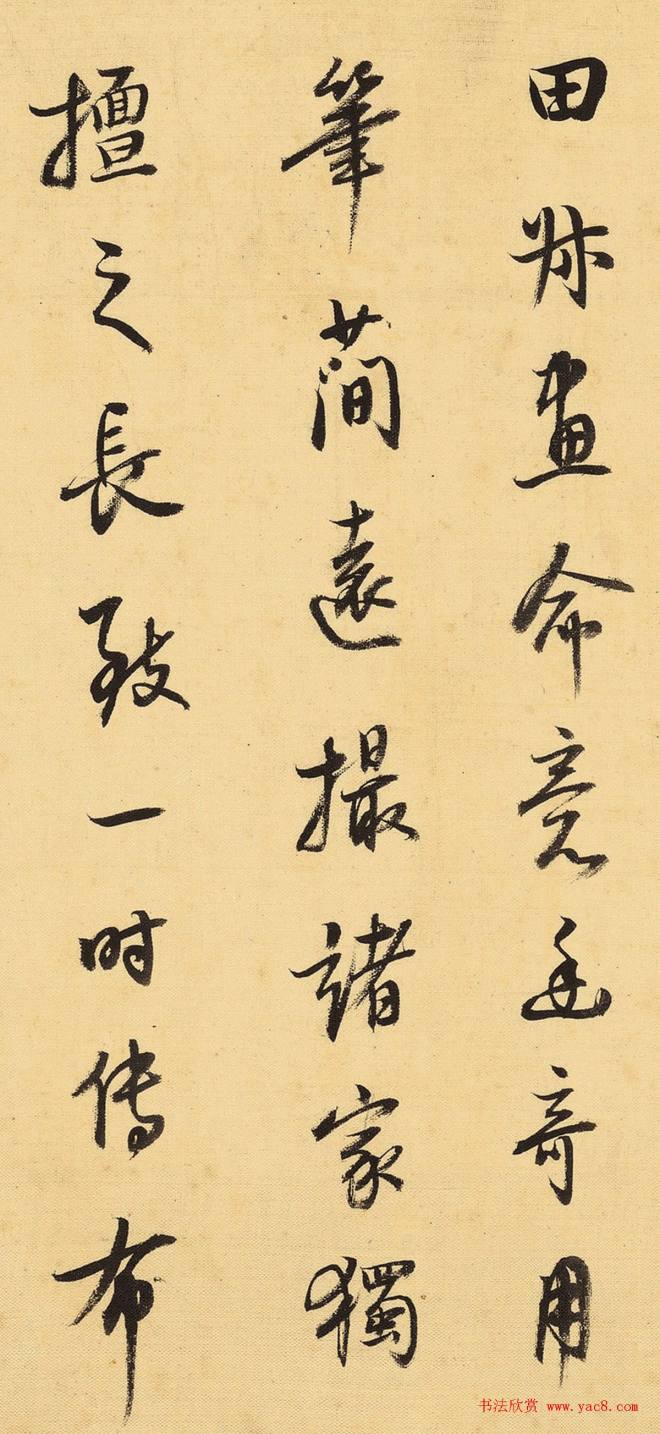 田叔畫命奇用
筆簡遠撮諸家獨
擅之長致一时傳布
书法欣赏 www.yac8.com